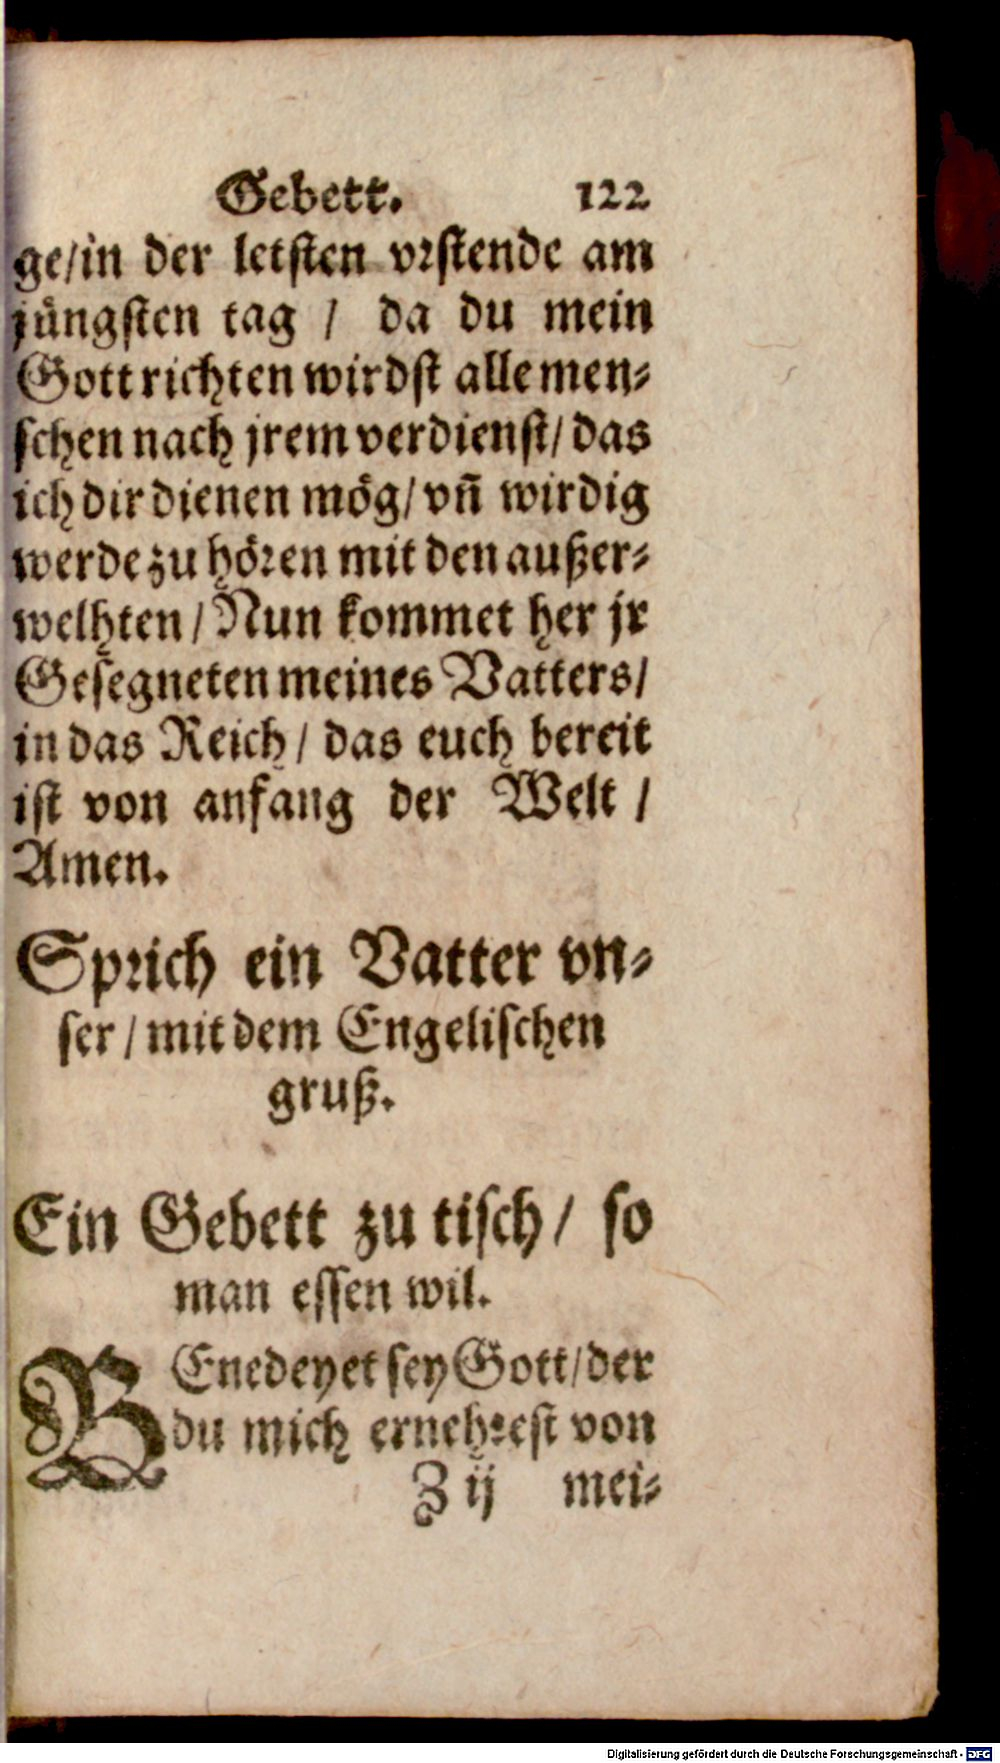 Gebett. 122
ge/in der letsten vrstende am
jüngsten tag / da du mein
Gott richten wirdst alle men⸗
schen nach jrem verdienst/ das
ich dir dienen mög/ vñ wirdig
werde zu hören mit den außer⸗
welhten / Nun kommet her jr
Gesegneten meines Vatters/
in das Reich / das euch bereit
ist von anfang der Welt /
Amen.
Sprich ein Vatter vn⸗
ser / mit dem Engelischen
gruß.
Ein Gebett zu tisch / so
man essen wil.
BEnedeyet sey Gott/der
du mich ernehrest von
Z ij mei⸗
Digitalisierung gefördert durch die Deutsche Forschungsgemeinschaft - DFG